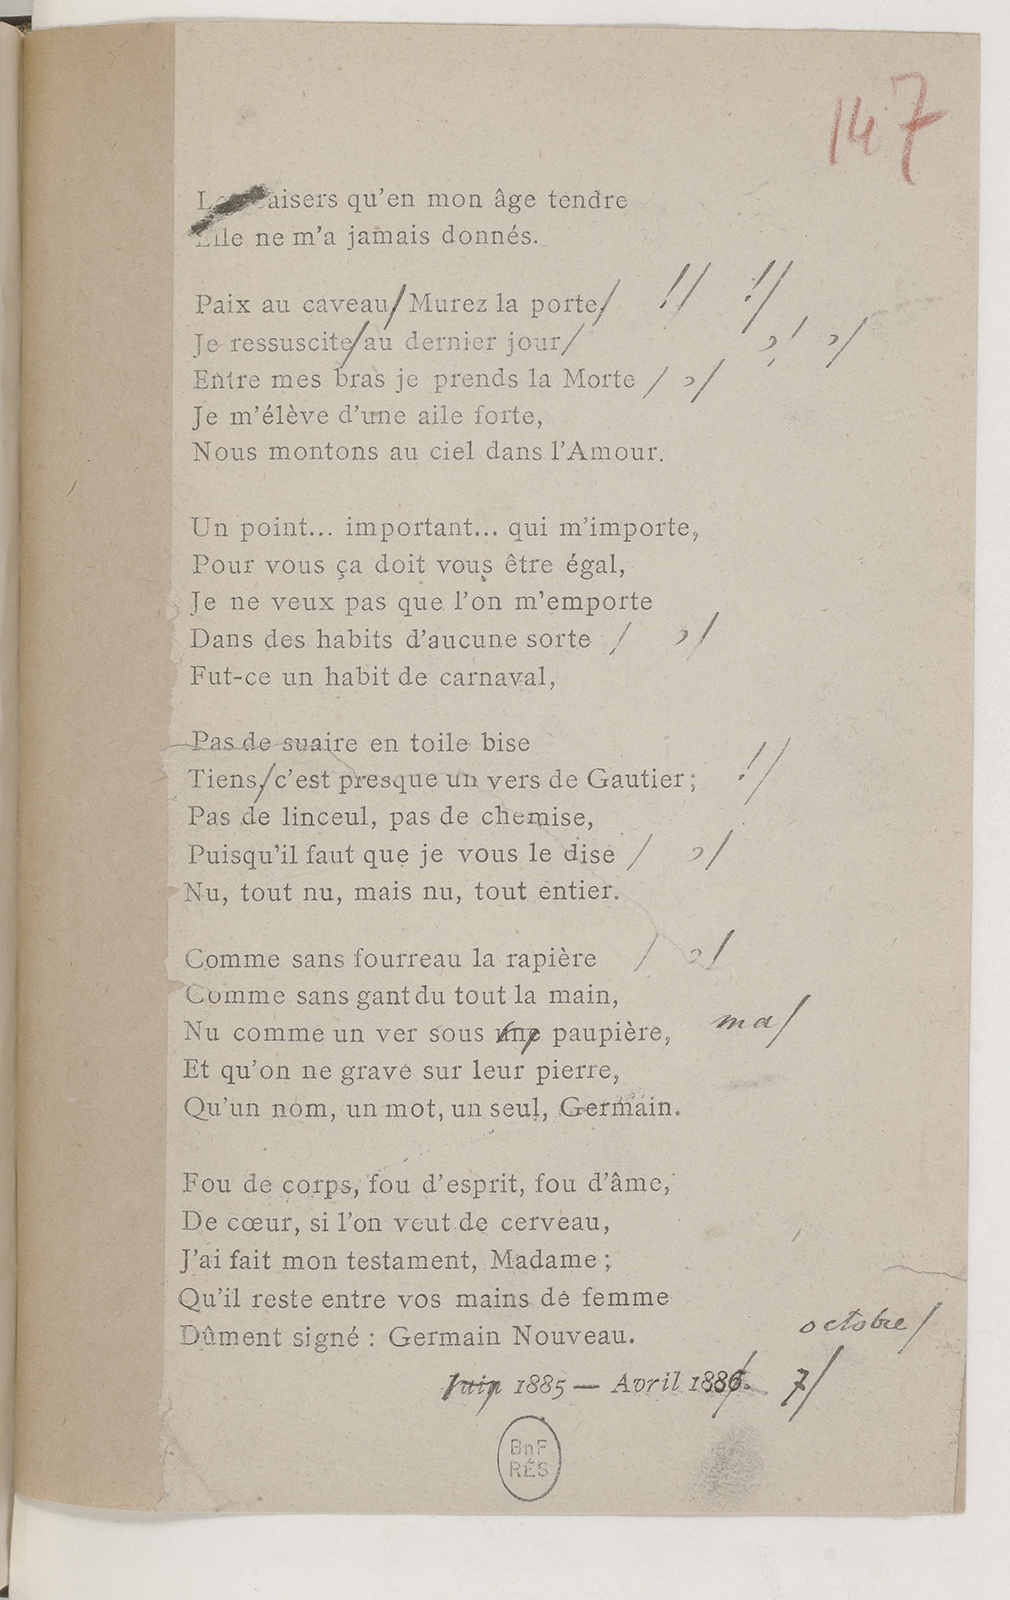 147
Les baisers qu'en mon âge tendre
Elle ne m'a jamais donnés.
Paix au caveau, Murez la porte, !/ !/
Je ressuscite au dernier jour ,! ,/
Entre mes bras je prends la Morte ,/
Je m'élève d'une aile forte,
Nous montons au ciel dans l'Amour.
Un point... important... qui m'importe,
Pour vous ça doit vous être égal,
Je ne veux pas que l'on m'emporte
Dans des habits d'aucune sorte ,/
Fut-ce un habit de carnaval,
Pas de suaire en toile bise
Tiens, c'est presque un vers de Gautier; !/
Pas de linceul, pas de chemise,
Puisqu'il faut que je vous le dise ,/
Nu, tout nu, mais nu, tout entier.
Comme sans fourreau la rapière ,/
Comme sans gant du tout la main,
Nu comme un ver sous une paupière, ma/
Et qu'on ne grave sur leur pierre,
Qu'un nom, un mot, un seul, Germain.
Fou de corps, fou d'esprit, fou d'âme,
De cœur, si l'on veut de cerveau,
J'ai fait mon testament, Madame;
Qu'il reste entre vos mains de femme
Dûment signé : Germain Nouveau.
octobre/
Juin 1885 — Avril 1886. 7/
BnF
RÉS